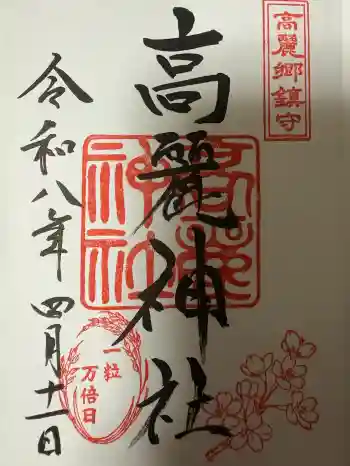 高麗郷鎮守
高麗神社
高麗
神社
令和八年 四月十一日
一粒
万倍日